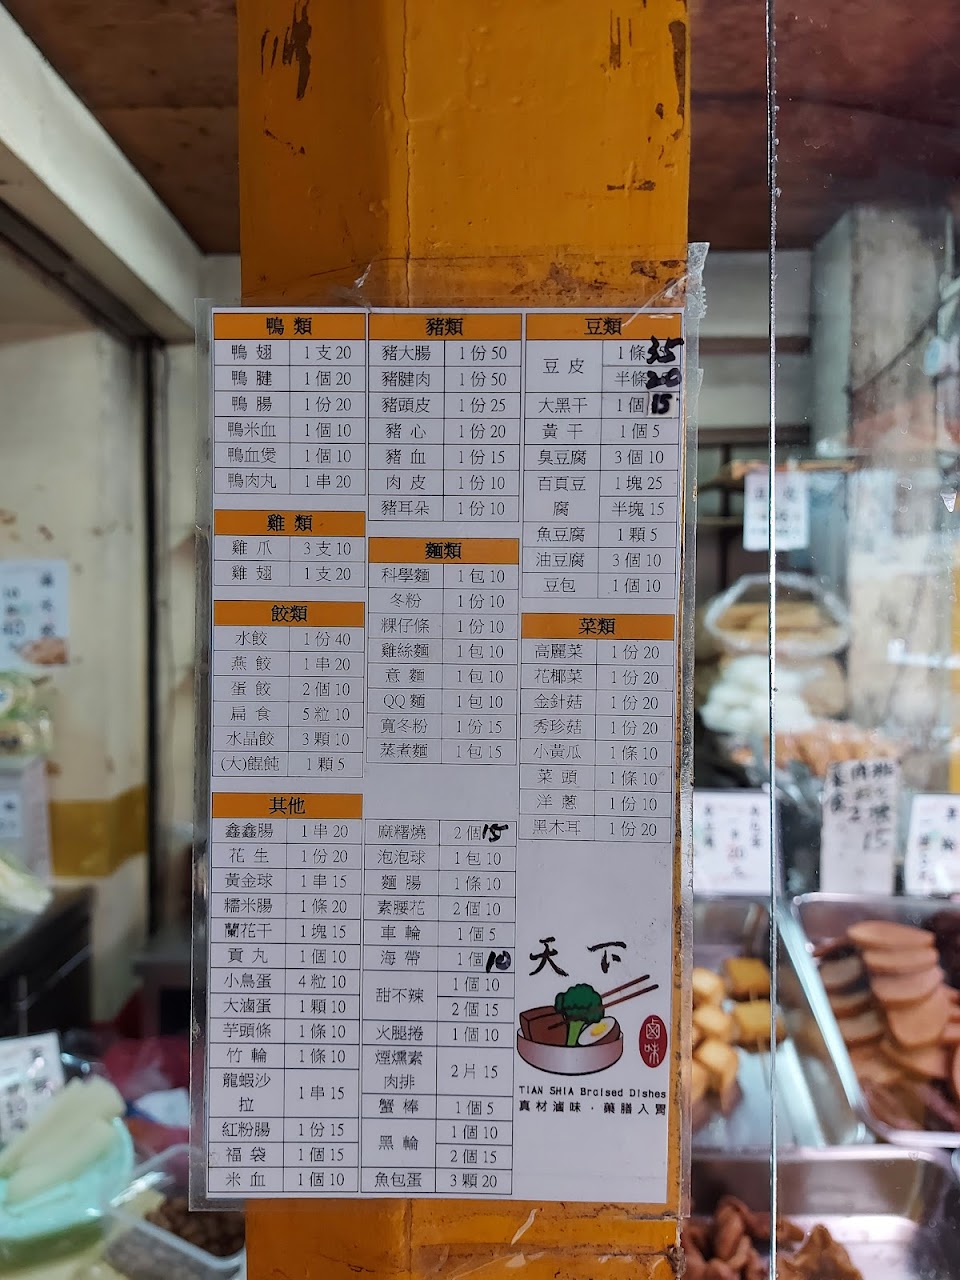 鴨類
鴨翅 1支20
鴨腱 1個20
鴨腸 1份20
鴨米血 1個10
鴨血煲 1個10
鴨肉丸 1串20
雞類
雞爪 3支10
雞翅 1支20
餃類
水餃 1份40
燕餃 1串20
蛋餃 2個10
扁食 5粒10
水晶餃 3顆10
(大)餛飩 1顆5
豬類
豬大腸 1份50
豬腱肉 1份50
豬頭皮 1份25
豬心 1份20
豬血 1份15
肉皮 1份10
豬耳朵 1份10
麵類
科學麵 1包10
冬粉 1份10
粿仔條 1份10
雞絲麵 1包10
意麵 1包10
QQ麵 1包10
寬冬粉 1份15
蒸煮麵 1包15
豆類
豆皮 1條35
半條20
大黑干 1個15
黃干 1個5
臭豆腐 3個10
百頁豆腐 1塊25
半塊15
魚豆腐 1顆5
油豆腐 3個10
豆包 1個10
菜類
高麗菜 1份20
花椰菜 1份20
金針菇 1份20
秀珍菇 1份20
小黃瓜 1條10
菜頭 1條10
洋蔥 1份10
黑木耳 1份20
其他
鑫鑫腸 1串20
花生 1份20
黃金球 1串15
糯米腸 1條20
蘭花干 1塊15
貢丸 1個10
小鳥蛋 4粒10
大滷蛋 1顆10
芋頭條 1條10
竹輪 1條10
龍蝦沙拉 1串15
紅粉腸 1份15
福袋 1個15
米血 1個10
麻糬燒 2個15
泡泡球 1包10
麵腸 1條10
素腰花 2個10
車輪 1個5
海帶 1個10
甜不辣 1個10
2個15
火腿捲 1個10
煙燻素肉排 2片15
蟹棒 1個5
黑輪 1個10
2個15
魚包蛋 3顆20
天下
鹵味
TIAN SHIA Braised Dishes
真材滷味．藥膳入胃